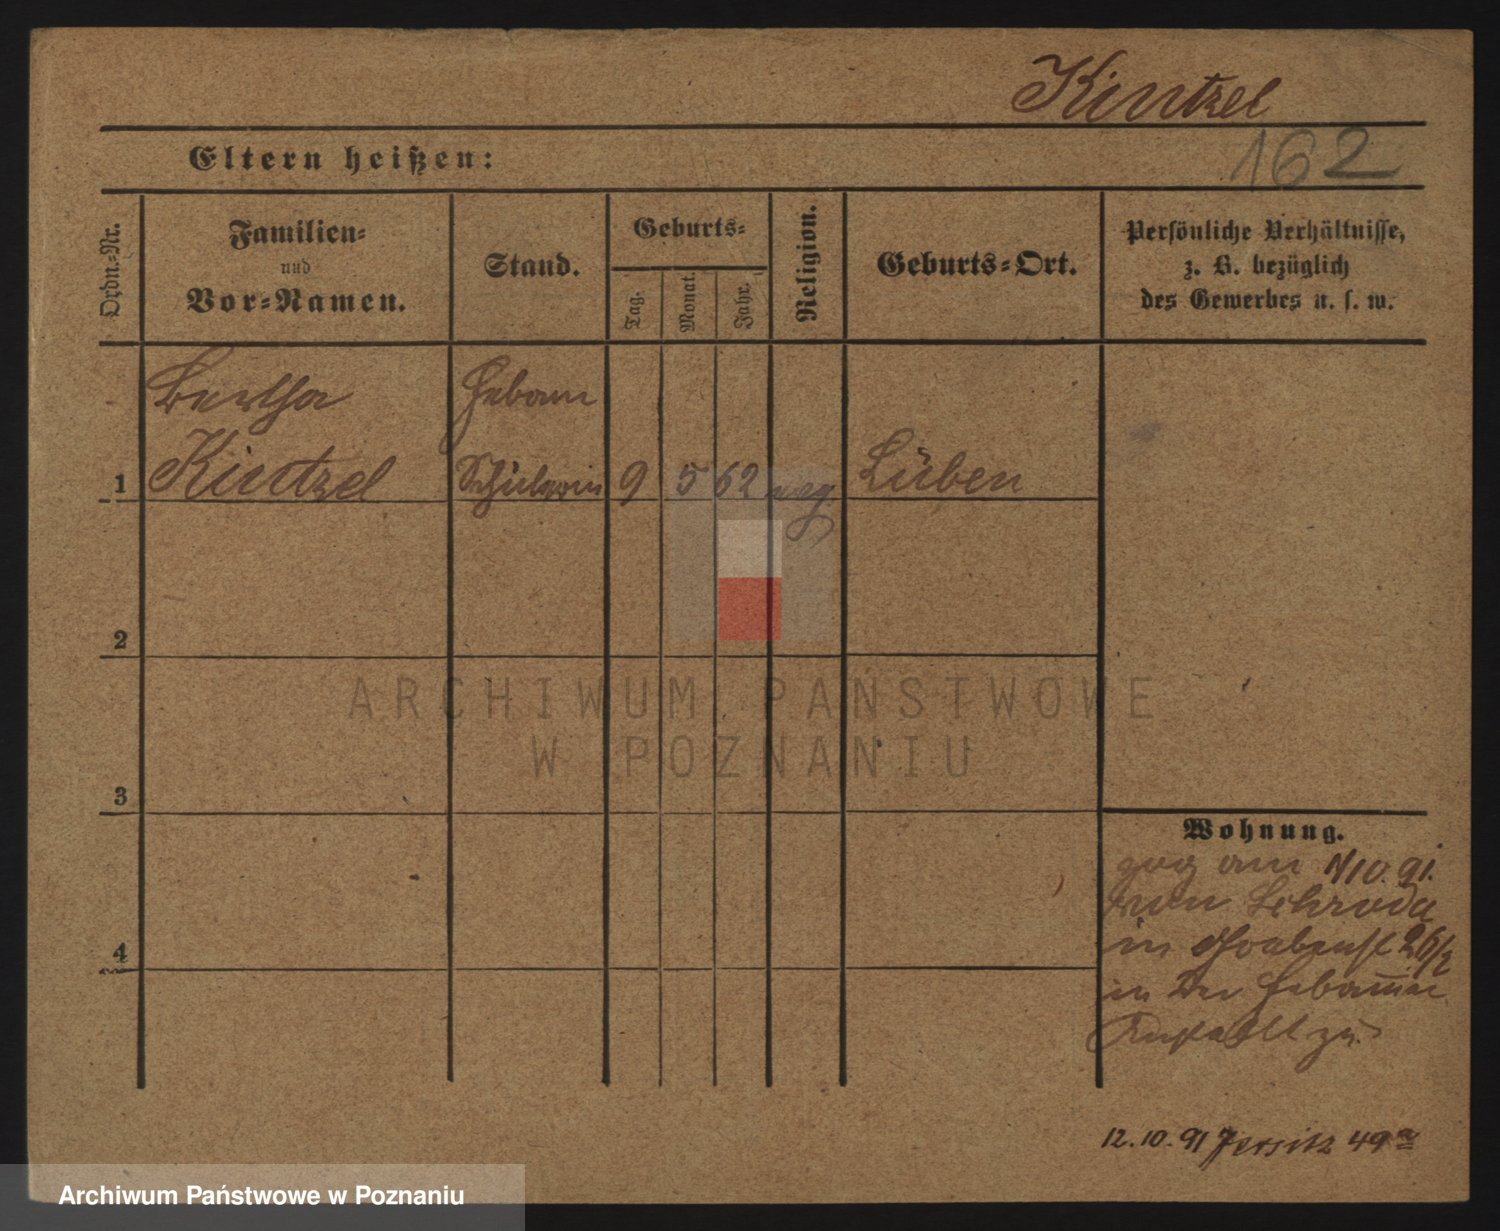 Kintzel
162
Eltern heißen:
Ordn.-Nr.
Familien-
und
Vor-Namen.
Stand.
Geburts-
Tag.
Monat.
Jahr.
Religion.
Geburts-Ort.
Persönliche Verhältnisse,
z. B. bezüglich
des Gewerbes u. s. w.
Bertha
Kintzel
Hebam
Schülerin
1
9
5
62
Lüben
2
ARCHIWUM PAŃSTWOWE
W POZNANIU
3
Wohnung.
zog am 1/10. 91.
von Schroda
in Grabenst 26/2
in der Hebammen
Anstalt zu
4
12.10.91 Jersitz 49a
Archiwum Państwowe w Poznaniu